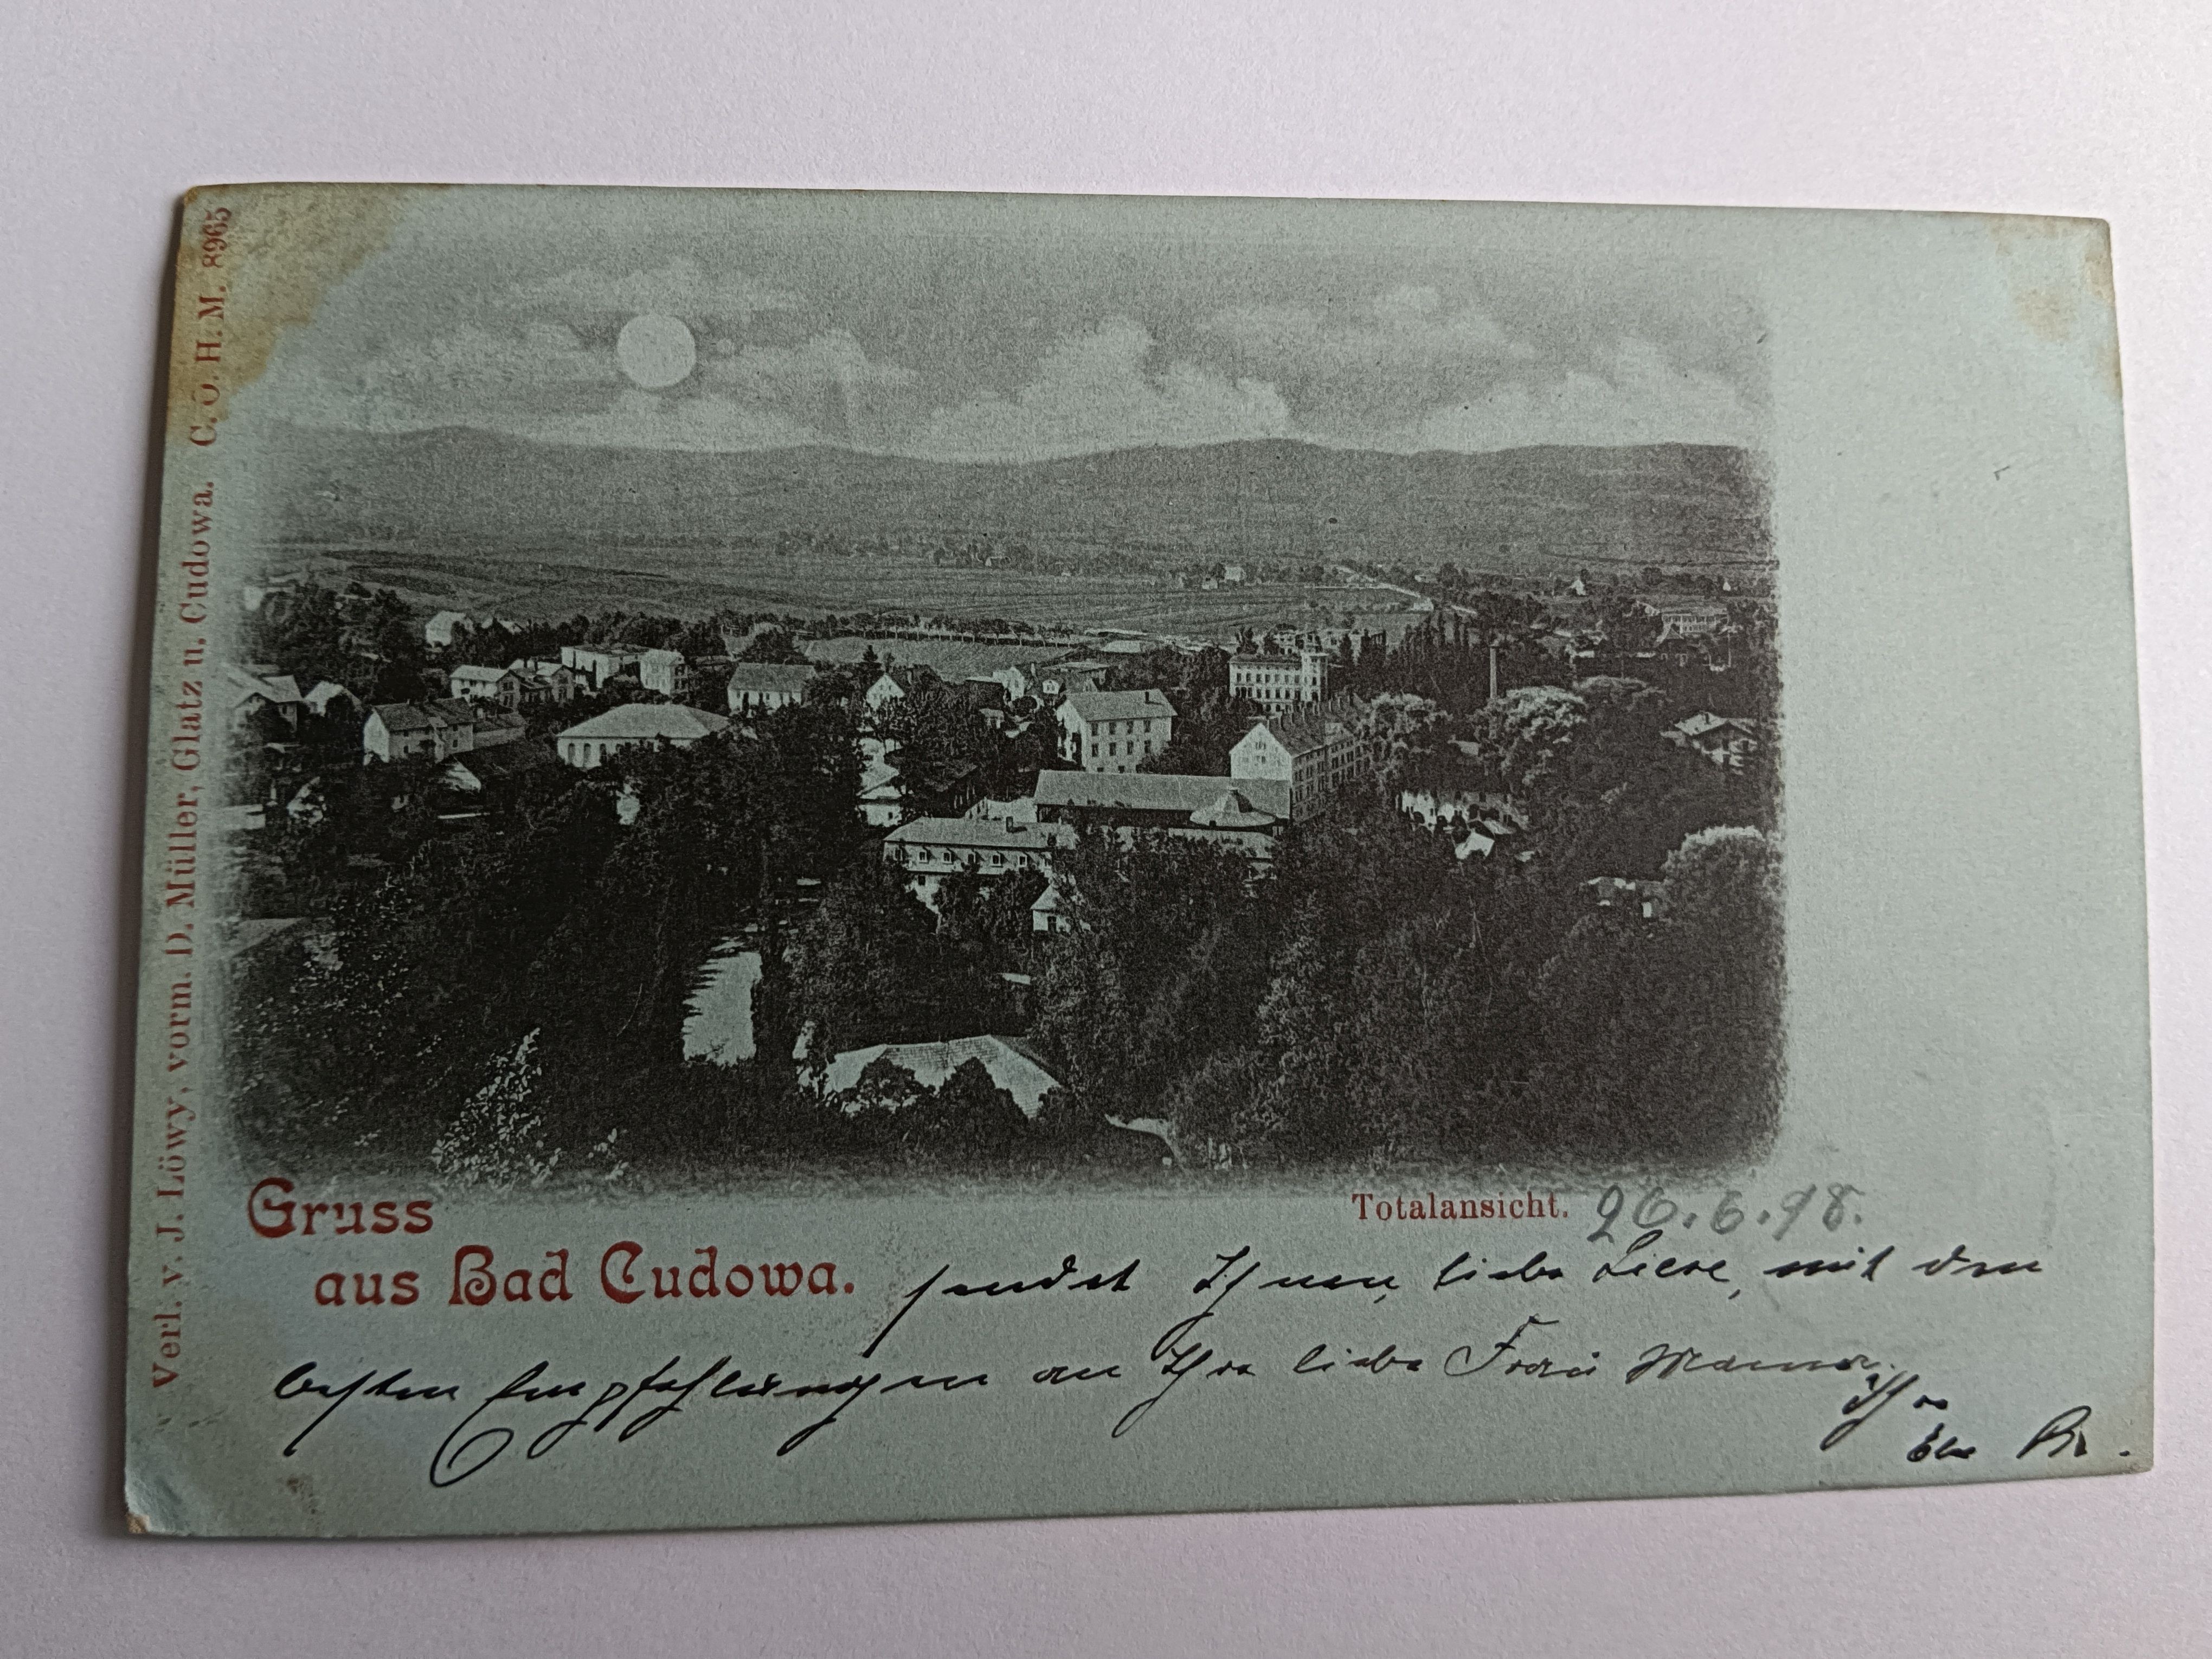 Verl. v. J. Löwy, vorm. D. Müller, Glatz u. Cudowa. C. O. H. M. 8965
Gruss
aus Bad Cudowa.
Totalansicht. 26.6.98.
sendet Ihnen, liebe Liese, mit den
besten Empfehlungen an Ihre liebe Frau Mama
Ihre